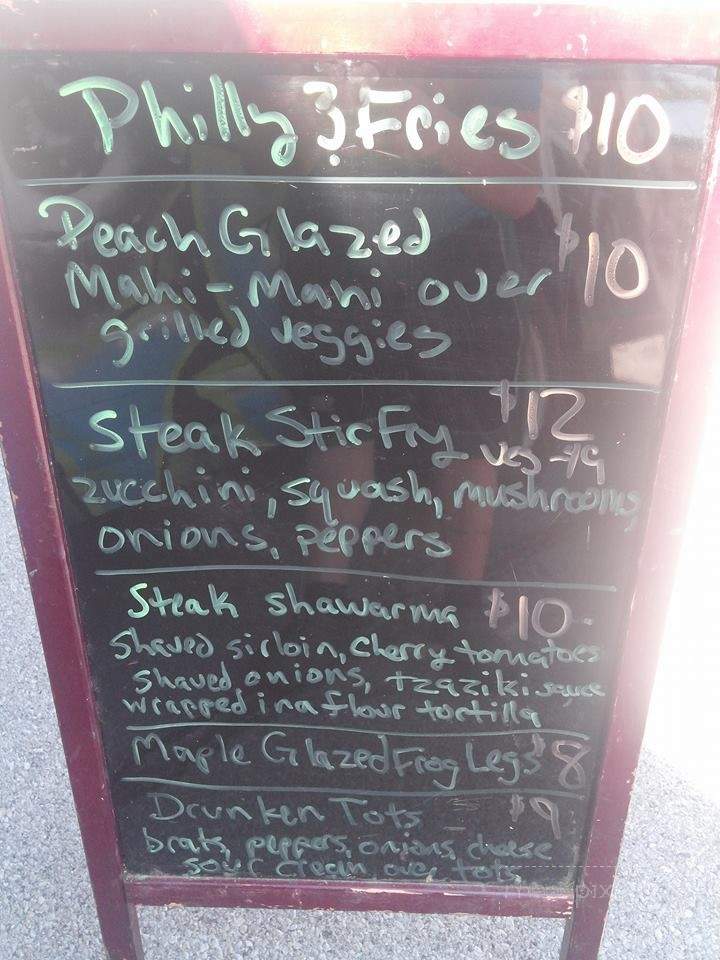 Philly & Fries $10
Peach Glazed
Mahi-Mahi over $10
grilled veggies
Steak Stir Fry $12
veg -$9
zucchini, squash, mushrooms,
onions, peppers
Steak shawarma $10
shaved sirloin, cherry tomatoes
shaved onions, tzaziki sauce
wrapped in a flour tortilla
Maple Glazed Frog Legs $8
Drunken Tots $9
brats, peppers, onions, cheese
sour cream, over tots